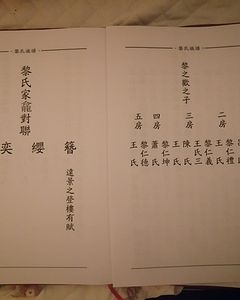 黎氏族譜
黎之歡之子
二房
黎仁禮
王氏
黎仁義
三房
王氏三
陳氏
王氏
黎仁坤
四房
蕭氏
黎仁德
五房
王氏
黎氏族譜
黎氏家龕對聯
簪纓奕
遠景之登樓有賦